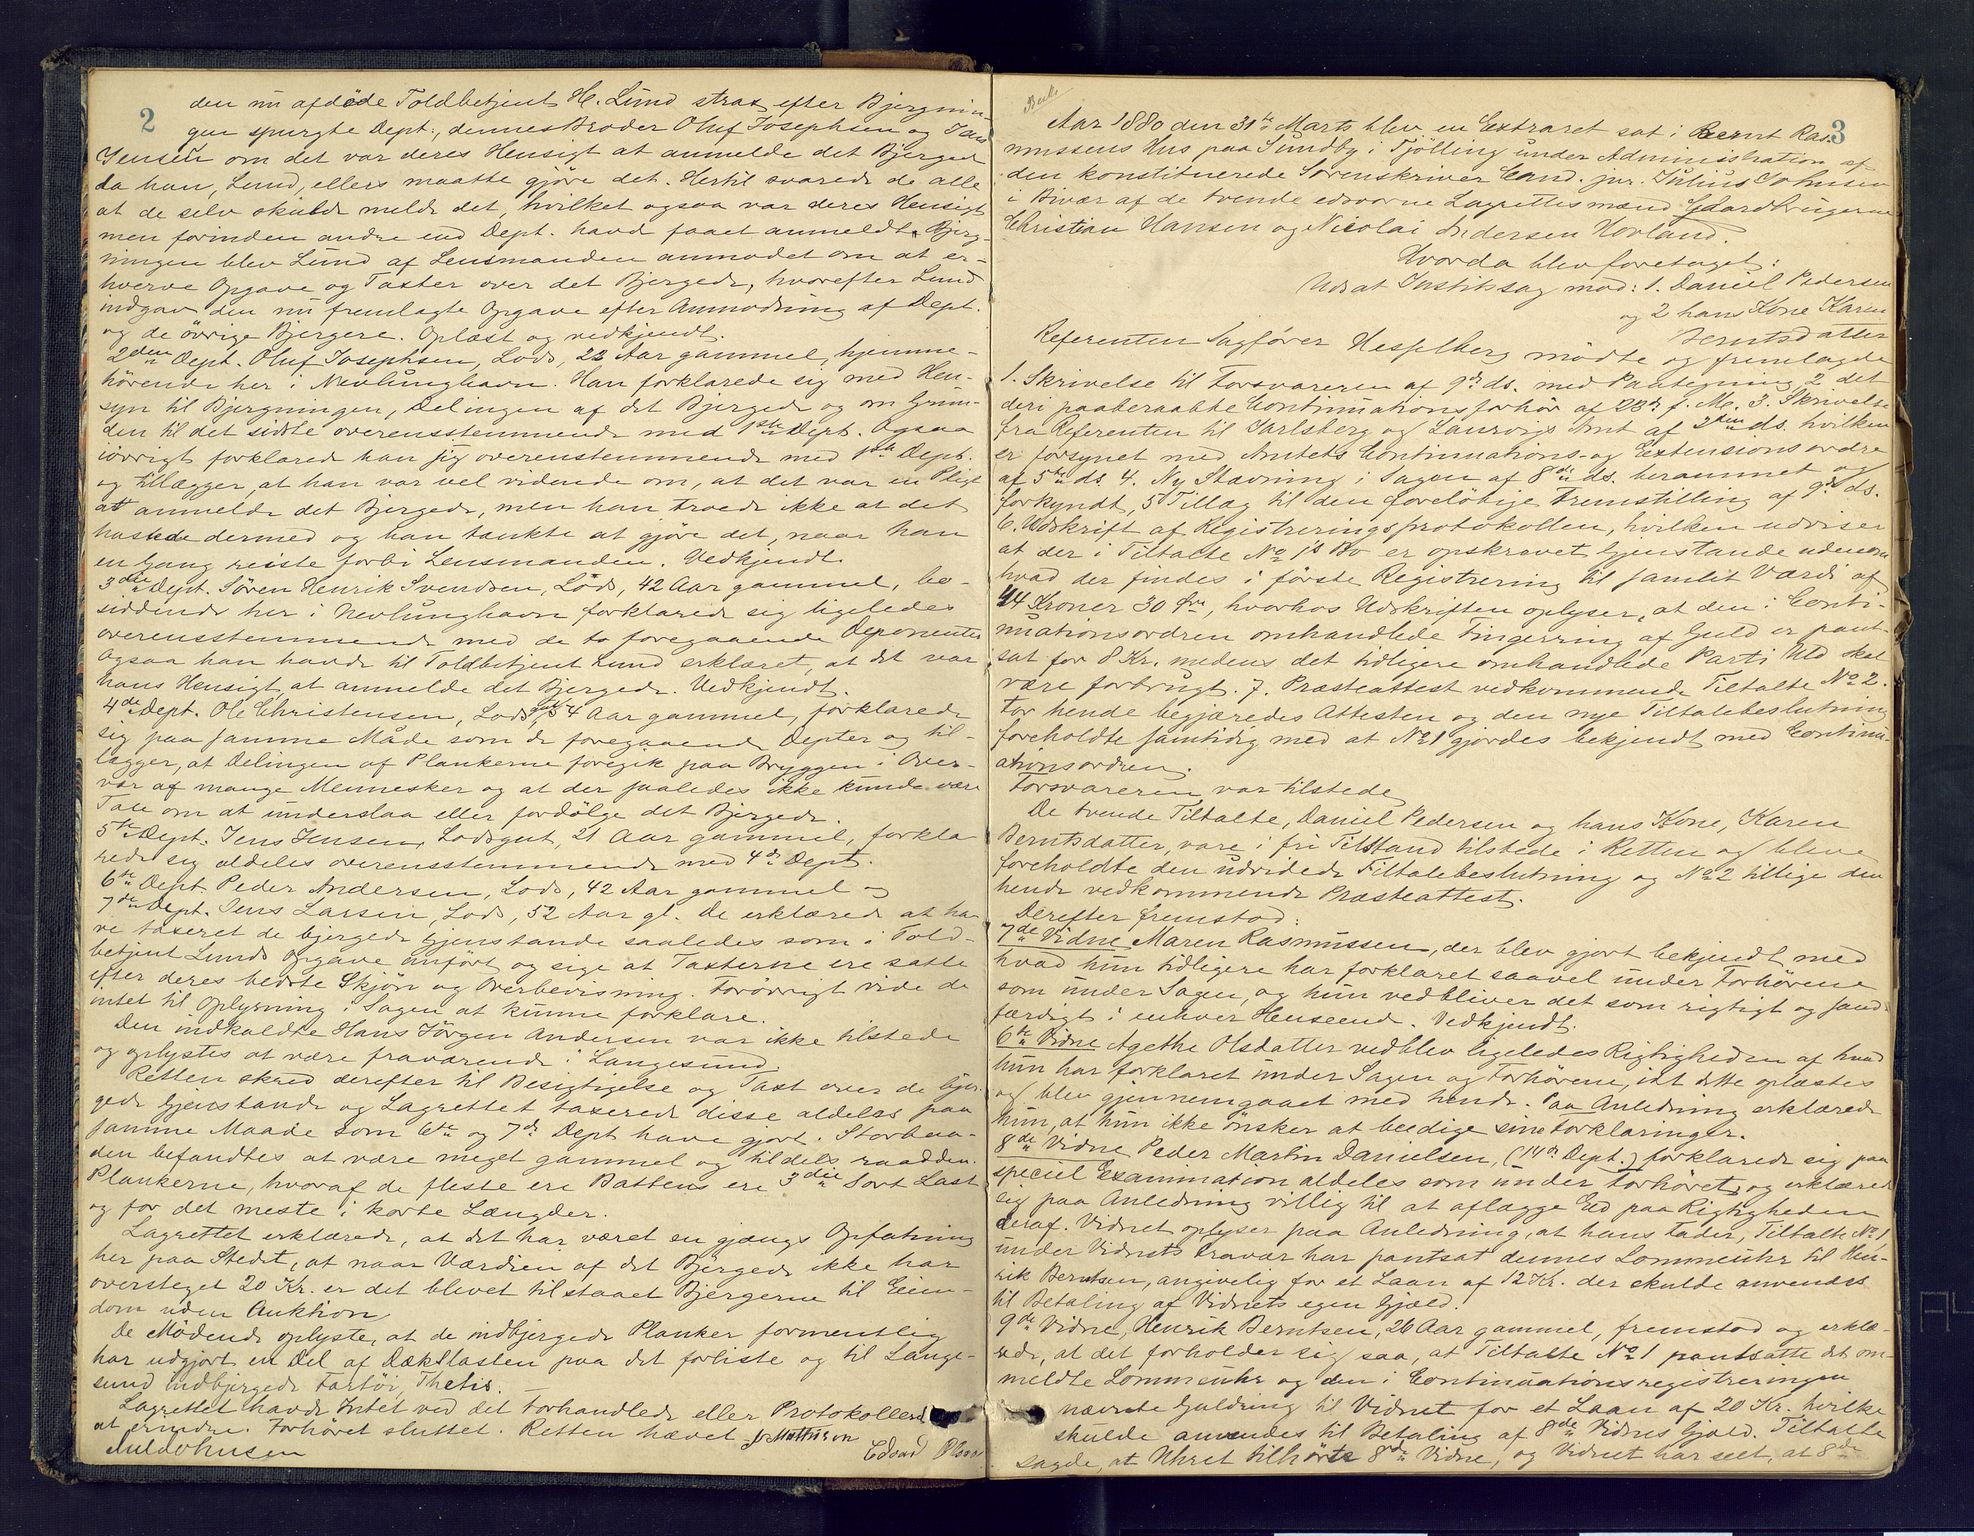 2
den nu afdøde Toldbetjent H. Lund strax efter Bjergnin-
gen spurgte Dept., dennes Broder Oluf Josephsen og Jens
Jensen om det var deres Hensigt at anmelde det Bjergede
da han, Lund, ellers maatte gjøre det. Hertil svarede de alle
at de selv skulde melde det, hvilket ogsaa var deres Hensigt
men forinden andre end Dept. havde faaet anmeldt Bjerg-
ningen blev Lund af Lensmanden anmodet om at er-
hverve Opgave og Taxter over det Bjergede, hvorefter Lund
indgav den nu fremlagte Opgave efter Anmodning af Dept.
og de øvrige Bjergere. Oplæst og vedkjendt.
2den Dept. Oluf Josephsen, Lods, 22 Aar gammel, hjemme-
hørende her i Nevlunghavn. Han forklarede sig med Hen-
syn til Bjergningen, Delingen af det Bjergede og om Grun-
den til det sidste overensstemmende med 1ste Dept. Ogsaa
iøvrigt forklared han sig overensstemmende med 1ste Dept.
og tillægger, at han var vel vidende om, at det var en Pligt
at anmelde det Bjergede, men han troede ikke at det
hastede dermed og han tænkte at gjøre det, naar han
en Gang reiste forbi Lensmanden. Vedkjendt.
3die Dept. Søren Henrik Svendsen, Lods, 42 Aar gammel, bo-
siddende her i Nevlunghavn forklarede sig ligeledes
overensstemmende med de to foregaaende Deponenter
Ogsaa han havde til Toldbetjent Lund erklæret, at det var
hans Hensigt at anmelde det Bjergede. Vedkjendt.
4de Dept. Ole Christensen, Lodsgut, 54 Aar gammel, forklarede
sig paa samme Måde som de foregaaende Depter og til-
lægger, at Delingen af Plankerne foregik paa Bryggen i Over-
vær af mange Mennesker og at der saaledes ikke kunde være
Tale om at underslaa eller fordølge det Bjergede.
5te Dept. Jens Jensen, Lodsgut, 21 Aar gammel, forkla-
rede sig aldeles overensstemmende med 4de Dept.
6te Dept. Peder Andersen, Lods, 42 Aar gammel og
7de Dept. Jens Larsen, Lods, 52 Aar gl. De erklærede at ha-
ve taxeret de bjergede Gjenstande saaledes som i Told-
betjent Lunds Opgave anført og sige at Taxterne ere satte
efter deres bedste Skjøn og Overbevisning. Forøvrigt vide de
intet til Oplysning i Sagen at kunne forklare.
Den indkaldte Hans Jørgen Andersen var ikke tilstede
og oplystes at være fraværende i Langesund.
Retten skred derefter til Besigtigelse og Taxt over de bjer-
gede Gjenstande og Lagrettet taxerede disse aldeles paa
samme Maade som 6te og 7de Dept have gjort. Storbaa-
den befandtes at være meget gammel og tildels raadden.
Plankerne, hvoraf de fleste ere Battens ere 3die Sort Last
og for det meste i korte Længder.
Lagrettet erklærede, at det har været en gjængs Opfatning
her paa Stedet, at naar Værdien af det Bjergede ikke har
oversteget 20 Kr. er det blevet tilstaaet Bjergerne til Eien-
dom uden Auktion
De Mødende oplyste, at de indbjergede Planker formentlig
har udgjort en Del af Dækslasten paa det forliste og til Lange-
sund indbjergede Fartøi Thetis.
Lagrettet havde Intet ved det Forhandlede eller Protokollen
at erindre. Forhøret sluttet. Retten hævet
Jul Johnsen J. Mathisen Edvard Olsen
3
Aar 1880 den 31te Marts blev en Extraret sat i Bernt Ras-
mussens Hus paa Sundby i Tjølling under Administration af
den konstituerede Sorenskriver Cand. jur. Julius Johnsen
i Bivær af de tvende edsvorne Lagrettesmænd Gaardbrugerne
Christian Hansen og Nicolai Andersen Hovland.
Hvorda blev foretaget:
Udsat Justitssag mod: 1. Daniel Pedersen
og 2 hans Kone Karen
Berntsdatter
Referenten Sagfører Hesselberg mødte og fremlagde
1. Skrivelse til Forsvareren af 9de ds. med Paategning 2 det
deri paaberaabte Continuationsforhør af 23de f. M. 3. Skrivelse
fra Referenten til Jarlsberg og Laurvigs Amt af 2den ds. hvilken
er forsynet med Amtets Continuations- og Extensionsordre
af 5te ds. 4. Ny Stævning i Sagen af 8de ds. berammet og
forkyndt, 5 Tillæg til den foreløbige Fremstilling af 9de ds.
6. Udskrift af Registreringsprotokollen, hvilken udviser
at der i Tiltalte No 1's Bo er opskrevet Gjenstande udenom
hvad der findes i første Registrering til samlet Værdi af
44 Kroner 30 Øre, hvorhos Udskriften oplyser, at den i Conti-
nuationsordren omhandlede Fingerring af Guld er pant-
sat for 8 Kr. medens det tidligere omhandlede Parti Uld skal
være forbrugt. 7. Præsteattest vedkommende Tiltalte No 2.
For hende begjæredes Attesten og den nye Tiltalebeslutning
foreholdte samtidig med at No 1 gjordes bekjendt med Continu-
ationsordren.
Forsvareren var tilstede
De tvende Tiltalte, Daniel Pedersen og hans Kone, Karen
Berntsdatter, vare i fri Tilstand tilstede i Retten og bleve
foreholdte den udvidede Tiltalebeslutning og No 2 tillige den
hende vedkommende Præsteattest.
Derefter fremstod:
7de Vidne Maren Rasmussen, der blev gjort bekjendt med
hvad hun tidligere har forklaret saavel under Forhørene
som under Sagen, og hun vedbliver det som rigtigt og sand-
færdigt i enhver Henseende. Vedkjendt.
6te Vidne Agethe Olsdatter vedblev ligeledes Rigtigheden af hvad
hun har forklaret under Sagen og Forhørene, idet dette oplæstes
og blev gjennemgaaet med hende. Paa Anledning erklærede
hun, at hun ikke ønsker at beedige sine Forklaringer.
8de Vidne Peder Martin Danielsen, (14de Dept.) forklarede sig paa
speciel Examination aldeles som under Forhøret og erklærede
sig paa Anledning villig til at aflægge Ed paa Rigtigheden
deraf. Vidnet oplyser paa Anledning, at hans Fader, Tiltalte No 1
under Vidnets Fravær har pantsat dennes Lommeuhr til Hen-
rik Berntsen, angivelig for et Laan af 12 Kr. der skulde anvendes
til Betaling af Vidnets egen Gjæld.
9de Vidne, Henrik Berntsen, 26 Aar gammel, fremstod og erklæ-
rede, at det forholder sig saa, at Tiltalte No 1 pantsatte det om-
meldte Lommeuhr og den i Continuationsregistreringen
nævnte Guldring til Vidnet for et Laan af 20 Kr. hvilke
skulde anvendes til Betaling af 8de Vidnes Gjæld. Tiltalte
sagde, at Uhret tilhørte 8de Vidne, og Vidnet har seet, at 8de